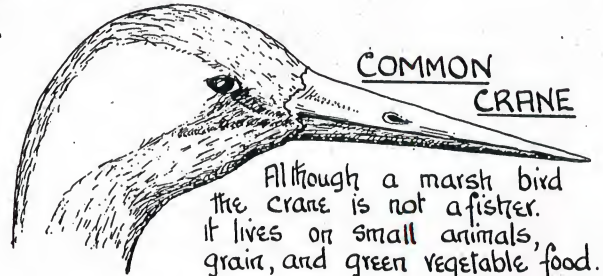 COMMON
CRANE
Although a marsh bird
the crane is not a fisher.
it lives on small animals,
grain, and green vegetable food.